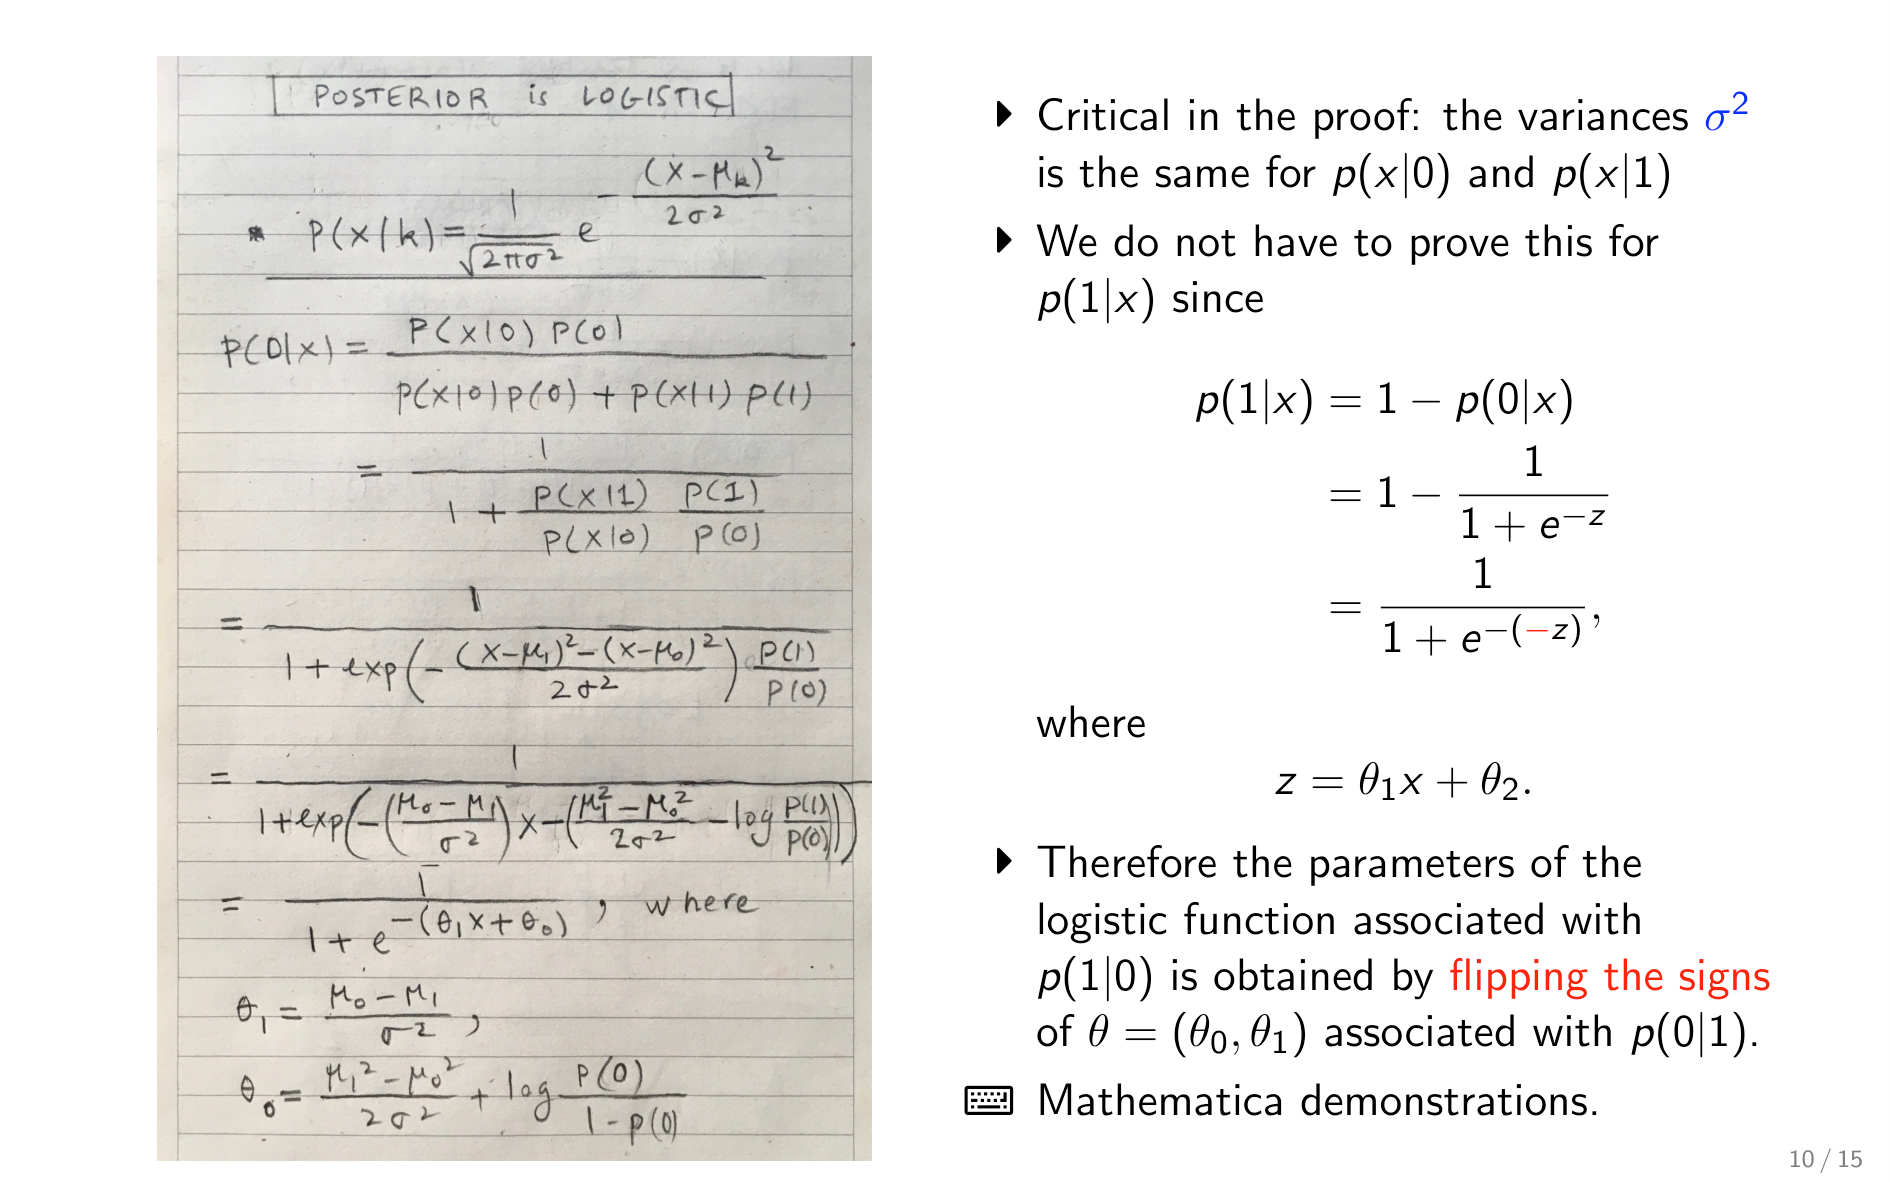 POSTERIOR is LOGISTIC
* P(x|k) = 1/√(2πσ²) e^(-(x-μₖ)²/(2σ²))
P(0|x) = P(x|0) P(0) / (P(x|0) P(0) + P(x|1) P(1))
= 1 / (1 + P(x|1)/P(x|0) P(1)/P(0))
= 1 / (1 + exp(-((x-μ₁)² - (x-μ₀)²)/(2σ²)) P(1)/P(0))
= 1 / (1 + exp(-((μ₀-μ₁)/σ²)x - ((μ₁²-μ₀²)/(2σ²) - log P(1)/P(0))))
= 1 / (1 + e^(-(θ₁x+θ₀))) , where
θ₁ = (μ₀-μ₁)/σ² ,
θ₀ = (μ₁²-μ₀²)/(2σ²) + log P(0)/(1-P(0))
Critical in the proof: the variances σ²
is the same for p(x|0) and p(x|1)
We do not have to prove this for
p(1|x) since
p(1|x) = 1 − p(0|x)
= 1 − 1/(1 + e^(−z))
= 1/(1 + e^(−(−z))),
where
z = θ₁x + θ₂.
Therefore the parameters of the
logistic function associated with
p(1|0) is obtained by flipping the signs
of θ = (θ₀, θ₁) associated with p(0|1).
Mathematica demonstrations.
10 / 15